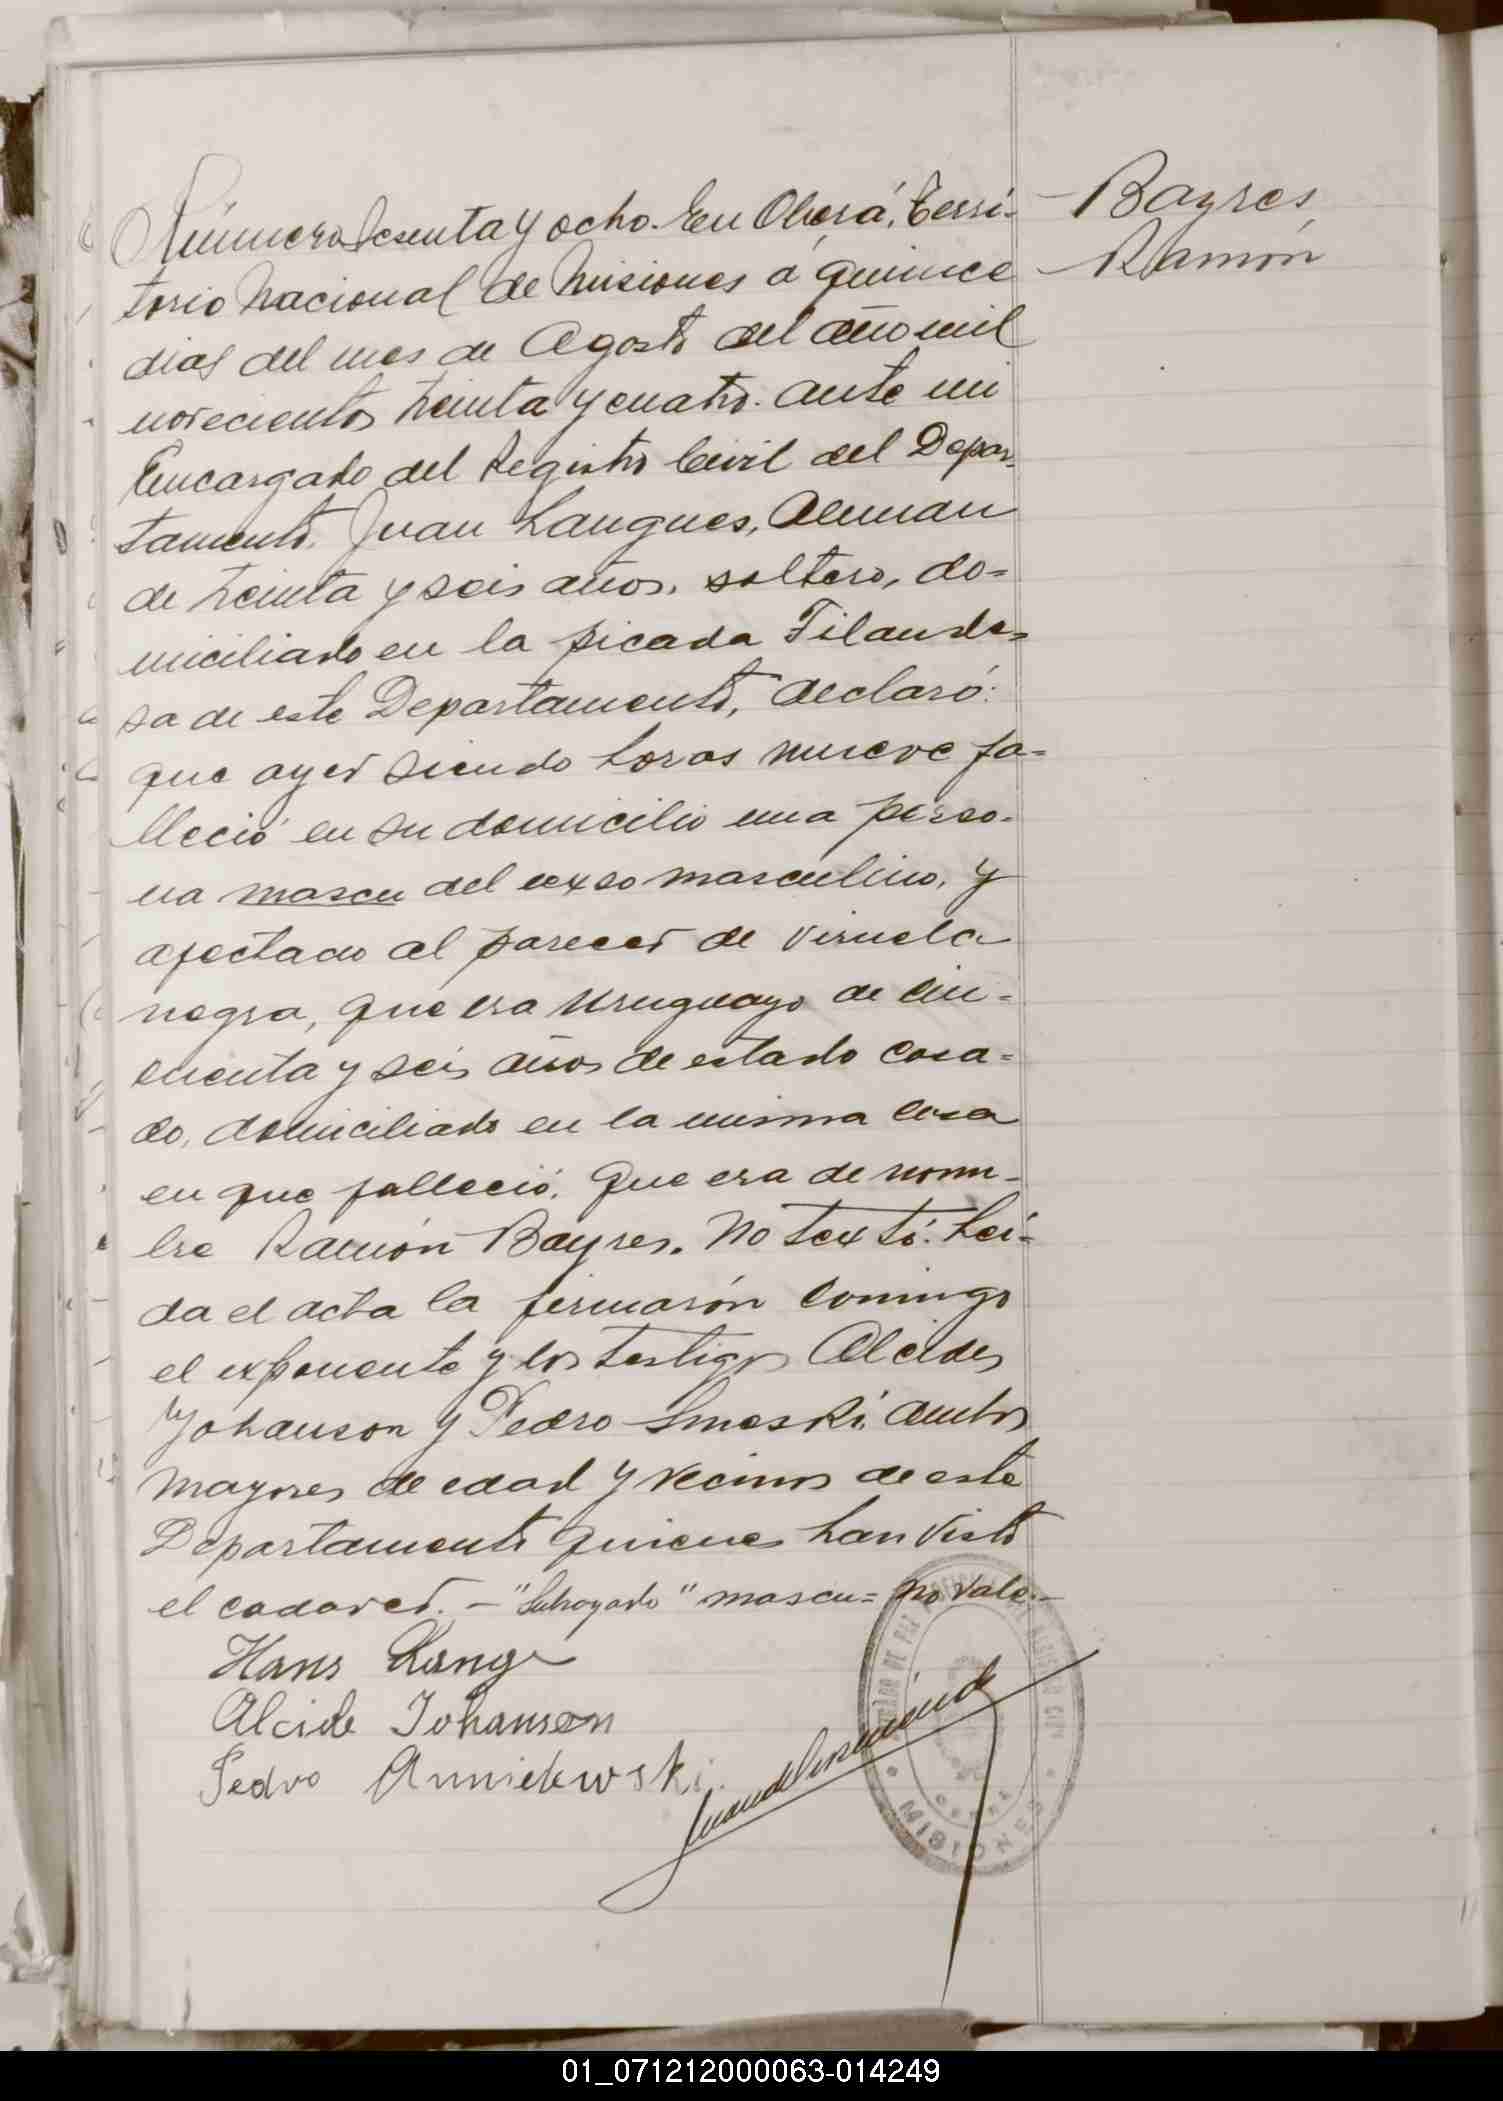 Número sesenta y ocho. En Oberá, Terri-
torio Nacional de Misiones a quince
dias del mes de Agosto del año mil
novecientos treinta y cuatro. ante mi
Encargado del Registro Civil del Depar-
tamento, Juan Langues, Aleman
de treinta y seis años, soltero, do-
miciliado en la picada Filande-
sa de este Departamento, declaró:
que ayer siendo horas nueve fa-
lleció en su domicilio una perso-
na mascu del sexo masculino, y
afectado al parecer de viruela
negra, que era Uruguayo de cin-
cuenta y seis años de estado casa-
do, domiciliado en la misma casa
en que falleció. Que era de nom-
bre Ramón Bayres. No textó. Leí-
da el acta la firmarón conmigo
el exponente y los testigos Alcides
Yohanson y Pedro Smeski ambos
mayores de edad y vecinos de este
Departamento quienes han visto
el cadaver. - "Subrayado" mascu= no vale.-
Hans Lange
Alcide Johanson
Pedro
Bayres
Ramón
MISIONES
01_071212000063-014249